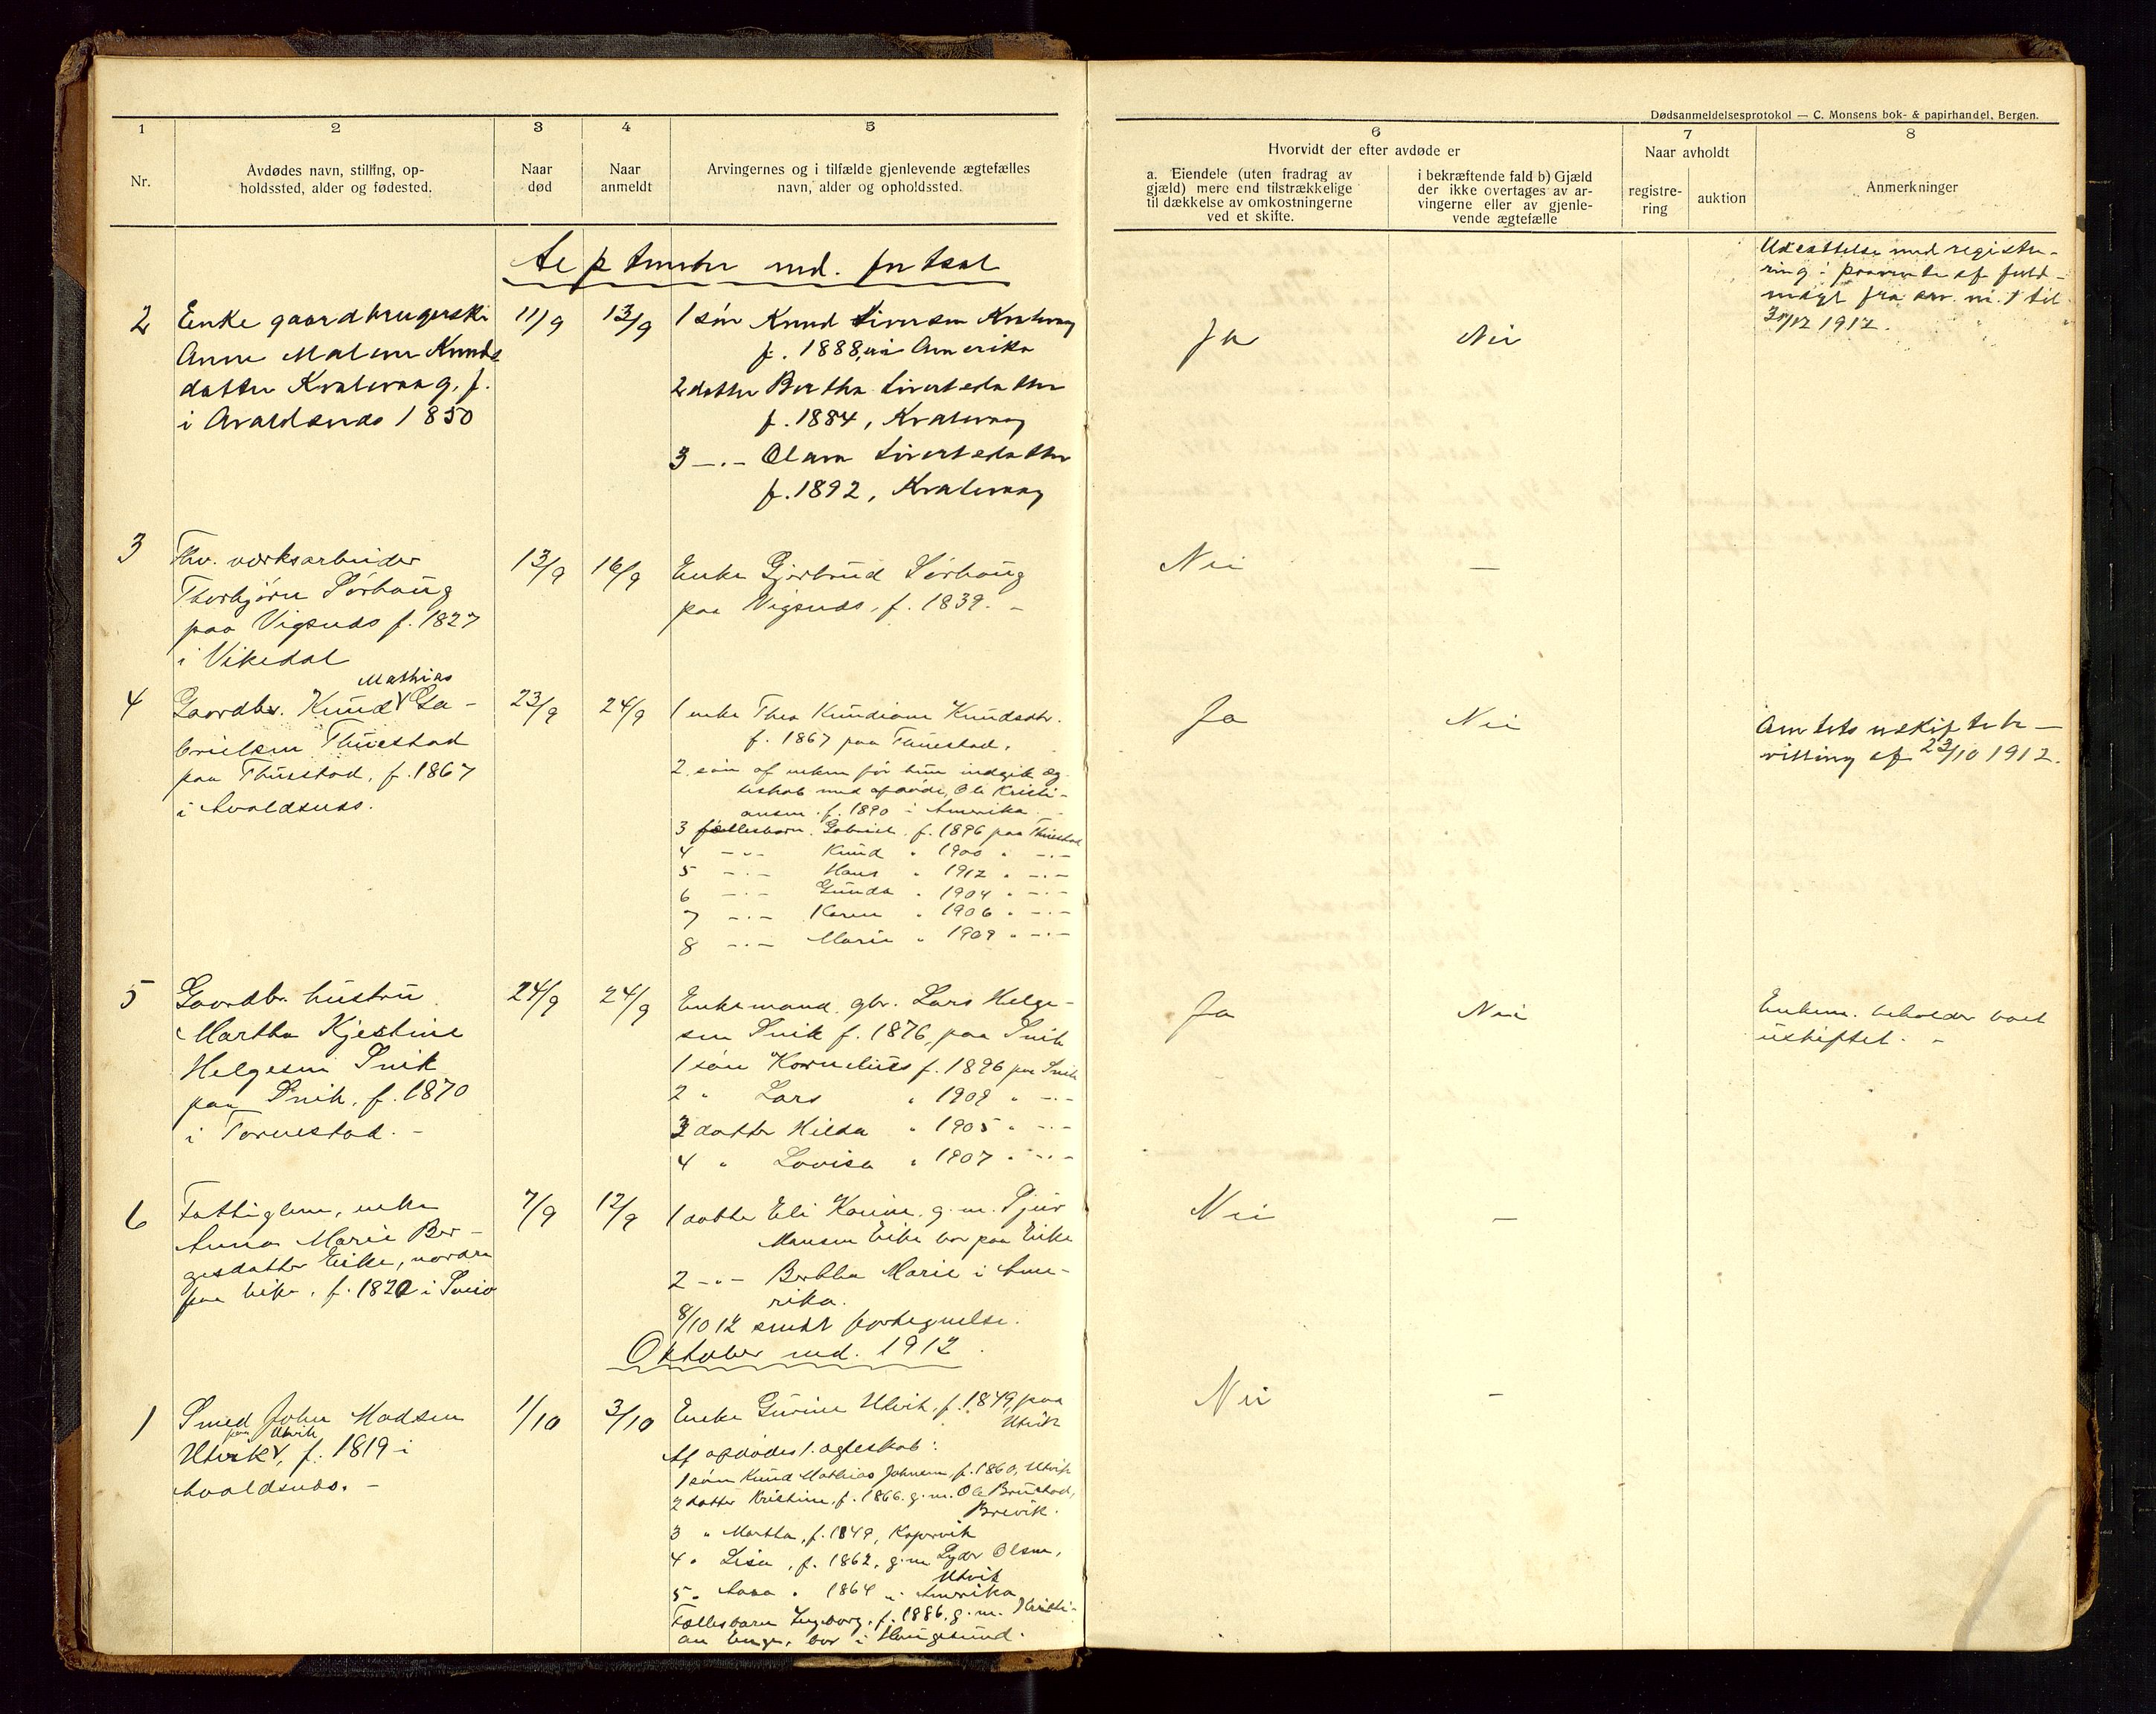 Dødsanmeldelsesprotokol — C. Monsens bok- & papirhandel, Bergen.
1 2 3 4 5 6 7 8
Nr.
Avdødes navn, stilling, op-
holdssted, alder og fødested.
Naar
død
Naar
anmeldt
Arvingernes og i tilfælde gjenlevende ægtefælles
navn, alder og opholdssted.
Hvorvidt der efter avdøde er
a. Eiendele (uten fradrag av
gjæld) mere end tilstrækkelige
til dækkelse av omkostningerne
ved et skifte.
i bekræftende fald b) Gjæld
der ikke overtages av ar-
vingerne eller av gjenle-
vende ægtefælle
Naar avholdt
registre-
ring
auktion
Anmerkninger
September md. fortsat
2
Enke gaardbrugerske
Anne Malene Knuds
datter Kvalevaag, f.
i Avaldsnes 1850
11/9
13/9
1 søn Knud Sivertsen Kvalevaag
f. 1888, i Amerika
2 datter Bertha Sivertsdatter
f. 1884, Kvalevaag
3 -.- Olava Sivertsdatter
f. 1892, Kvalevaag
Ja
Nei
Udsættelse med registre-
ring i paavente af fuld-
magt fra arv. nr. 1 til
31/12 1912.
3
Fhv. verksarbeider
Thorbjørn Sørhaug
paa Vigsnes f. 1827
i Vikedal
13/9
16/9
Enke Gjertrud Sørhaug
paa Vigsnes, f. 1839. -
Nei
—
4
Mathias
Gaardbr. Knud Ga-
brielsen Thuestad
paa Thuestad, f. 1867
i Avaldsnes.
23/9
24/9
1 enke Thea Kundiane Knudsdtr.
f. 1867 paa Thuestad.
2 søn af enken før hun indgik æg-
teskab med afdøde, Ole Kristi-
ansen f. 1890 i Amerika
3 fællesbarn Gabriel f. 1896 paa Thuestad
4 -.- Knud " 1900 " -.-
5 -.- Hans " 1912 " -.-
6 -.- Gunda " 1904 " -.-
7 -.- Karen " 1906 " -.-
8 -.- Marie " 1909 " -.-
Ja
Nei
Amtets uskiftebe-
villing af 23/10 1912.
5
Gaardbr. hustru
Martha Kjestine
Helgesen Snik
paa Snik, f. 1870
i Torvestad. -
24/9
24/9
Enkemand, gbr. Lars Helge-
sen Snik f. 1876, paa Snik
1 søn Kornelius f. 1896 paa Snik
2 " Lars " 1909 " -.-
3 datter Hilda " 1905 " -.-
4 " Lovisa " 1907 " -.-
Ja
Nei
Enkem. beholder boet
uskiftet. -
6
Fattiglem, enke
Anna Marie Ber-
gesdatter Eike, nordre
paa Eike, f. 1820 i Sveio
7/9
12/9
1 datter Eli Karine, g. m. Sjur
Monsen Eike bor paa Eike
2 -.- Bertha Marie i Ame-
rika.
8/10 12 sendt fortegnelse.
Nei
—
Oktober md. 1912
1
Smed John Madsen
paa Utvik
Utvik, f. 1819 i
Avaldsnes. -
1/10
3/10
Enke Gurine Utvik, f. 1849, paa
Utvik
Af afdødes 1. ægteskab:
1 søn Knud Mathias Johnsen, f. 1860, Utvik
2 datter Kristine, f. 1866. g. m. Ole Brustad,
Brevik.
3 " Martha, f. 1849, Kopervik
4 " Lisa, f. 1862, g. m. Peder Olsen,
Utvik
5 " Anna " 1864 i Amerika
Fællesbarn Ingeborg, f. 1886, g. m. Kristi-
an Enge, bor i Haugesund.
Nei
—